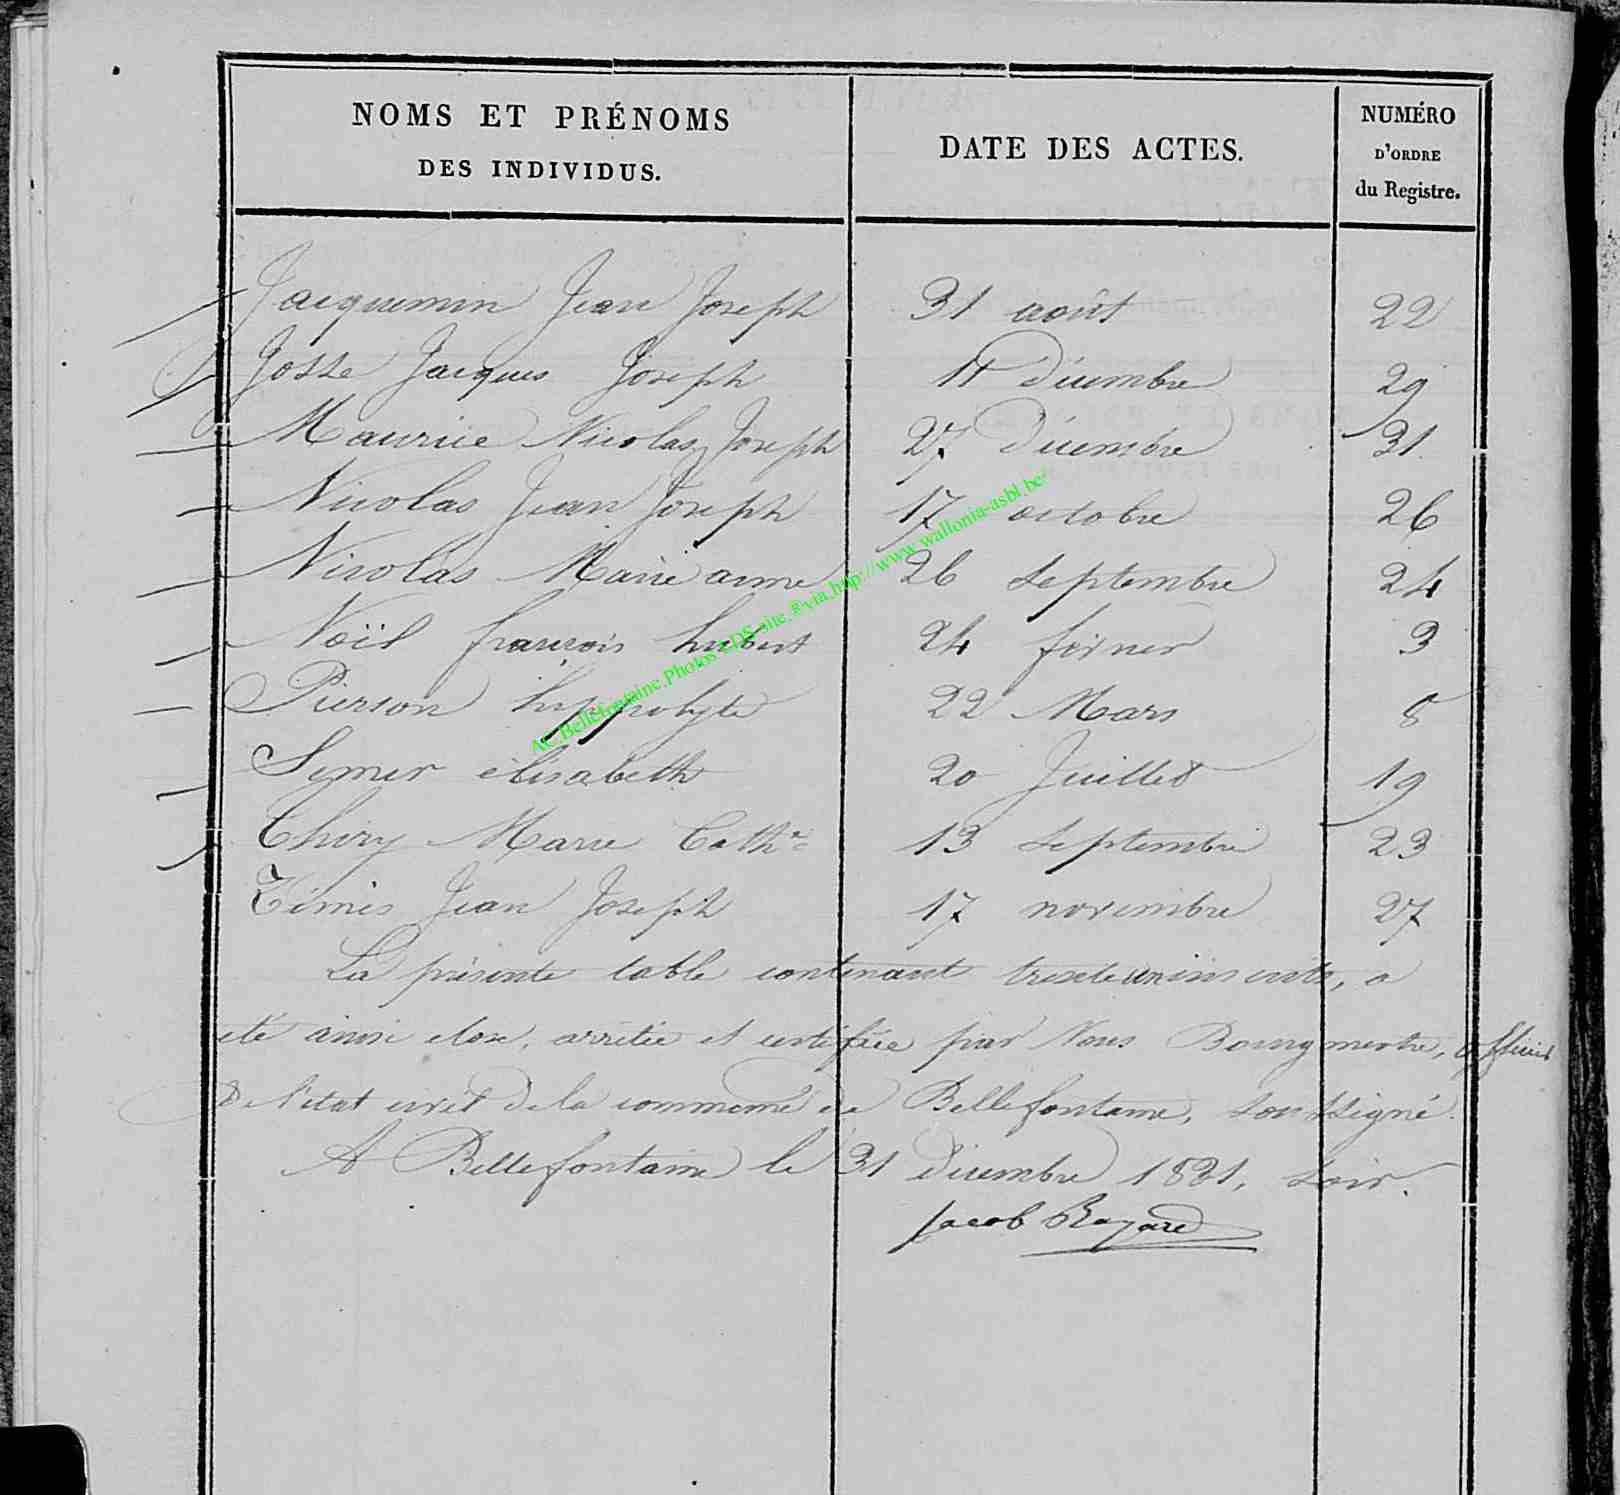 NOMS ET PRÉNOMS
DES INDIVIDUS.
DATE DES ACTES.
NUMÉRO
D'ORDRE
du Registre.
Jacquemin Jean Joseph 31 août 22
Josse Jacques Joseph 11 décembre 29
Maurice Nicolas Joseph 27 décembre 31
Nicolas Jean Joseph 17 octobre 26
Nicolas Marie anne 26 septembre 24
Noël françois hubert 24 février 3
Pierson hippolyte 22 Mars 8
Semer élisabeth 20 Juillet 19
Thiry Marie Cathne 13 septembre 23
Jean Joseph 17 novembre 27
La présente table contenant trente un inscrits, a
été ainsi close, arrêtée et certifiée par Nous Bourgmestre, officier
de l'état civil de la commune de Bellefontaine, soussigné.
A Bellefontaine le 31 décembre 1831, soir.
Jacob
AC.Bellefontaine.Photos LDS site ®via http://www.wallonia-asbl.be/